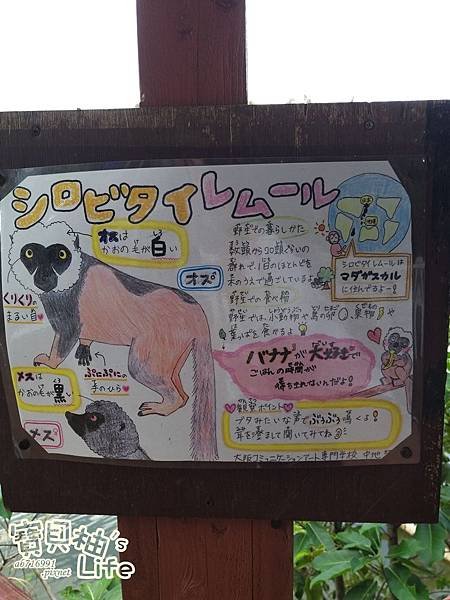 シロビタイレムール
オスは
かおの毛が白い
オス
くりくりの
まるい目
ぷにぷにの
手のひら
メスは
かおの毛が黒い
メス
野生での暮らしかた
数頭から20頭ぐらいの
群れで、1日のほとんどを
木のうえで過ごしているよ
野生での食べ物
野生では、小動物や鳥の卵、果物や
葉っぱを食べるよ
シロビタイレムールは
マダガスカル
に住んでるよー!
バナナが大好きで
ごはんの時間が
待ちきれないんだよ!
観察ポイント
ブタみたいな声でぶうぶう鳴くよ!
耳を澄まして聞いてみてね
大阪コミュニケーションアート専門学校
寶貝柚's
Life
a6716991
.pixnet